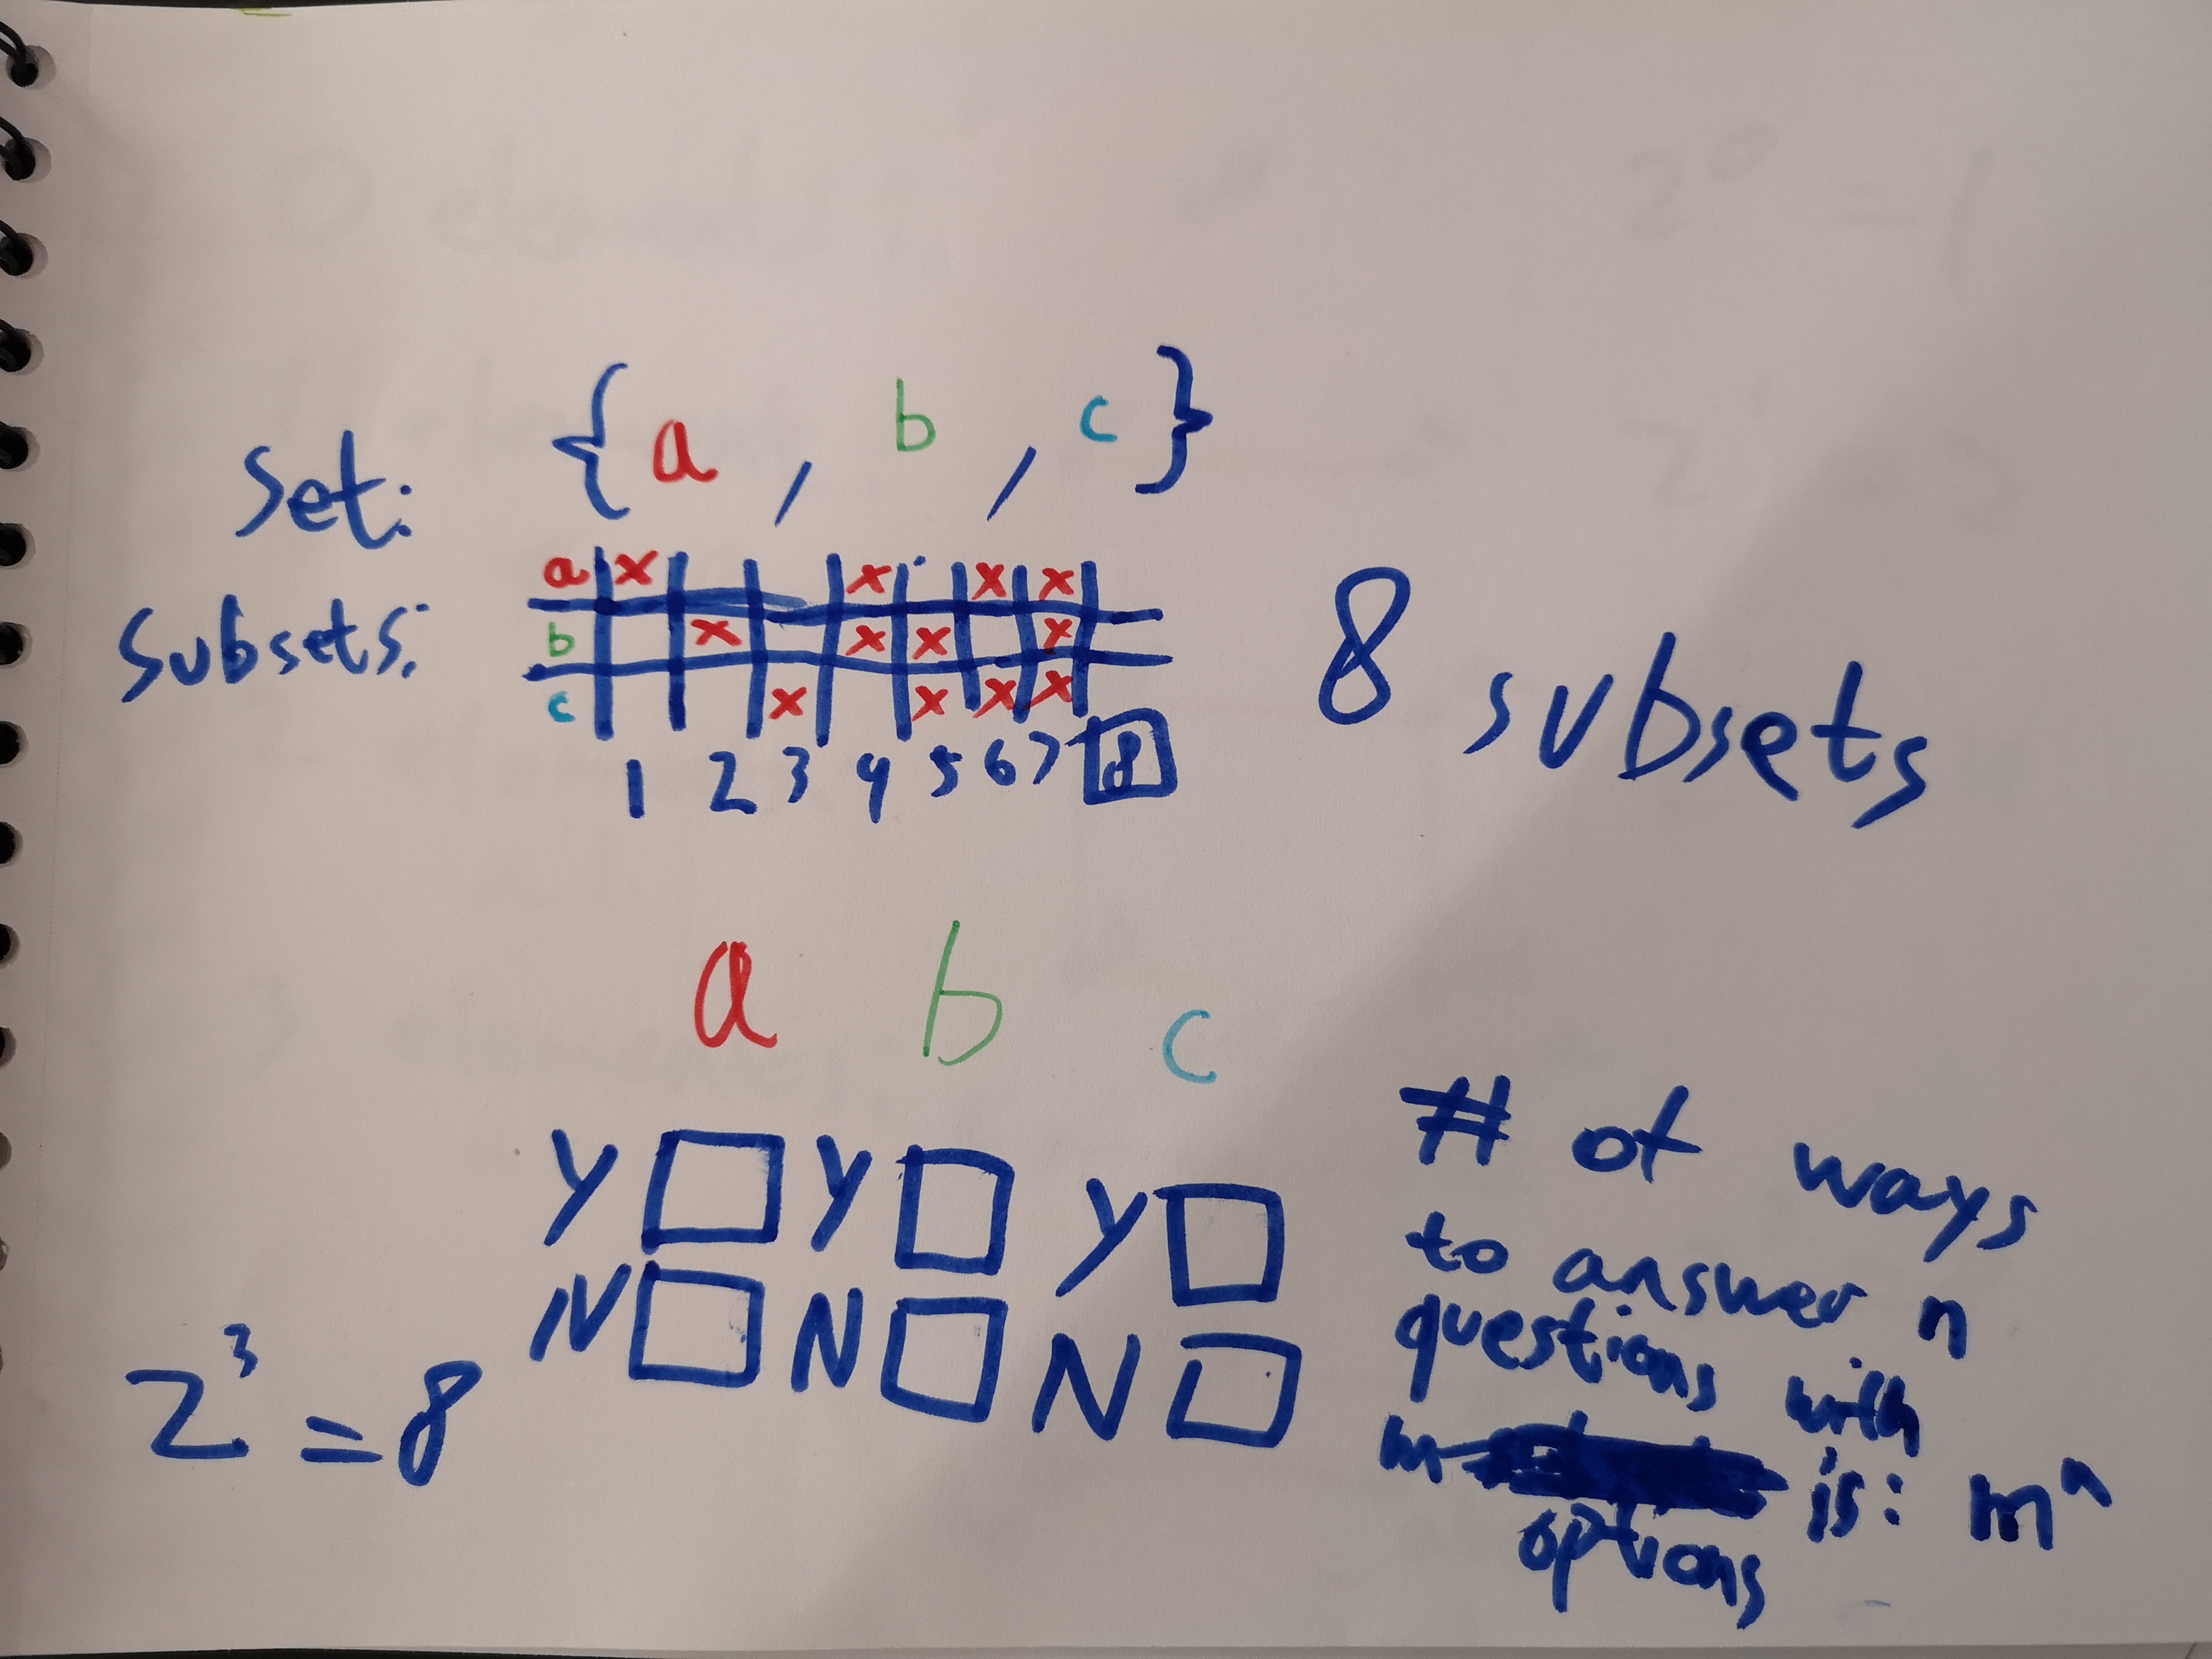 Set: {a, b, c}
a x x x x
Subsets: b x x x x
c x x x x
1 2 3 4 5 6 7 8
8 subsets
a b c
Y Y Y
N N N
2³ = 8
# of ways
to answer n
questions with
m
options is: mⁿ